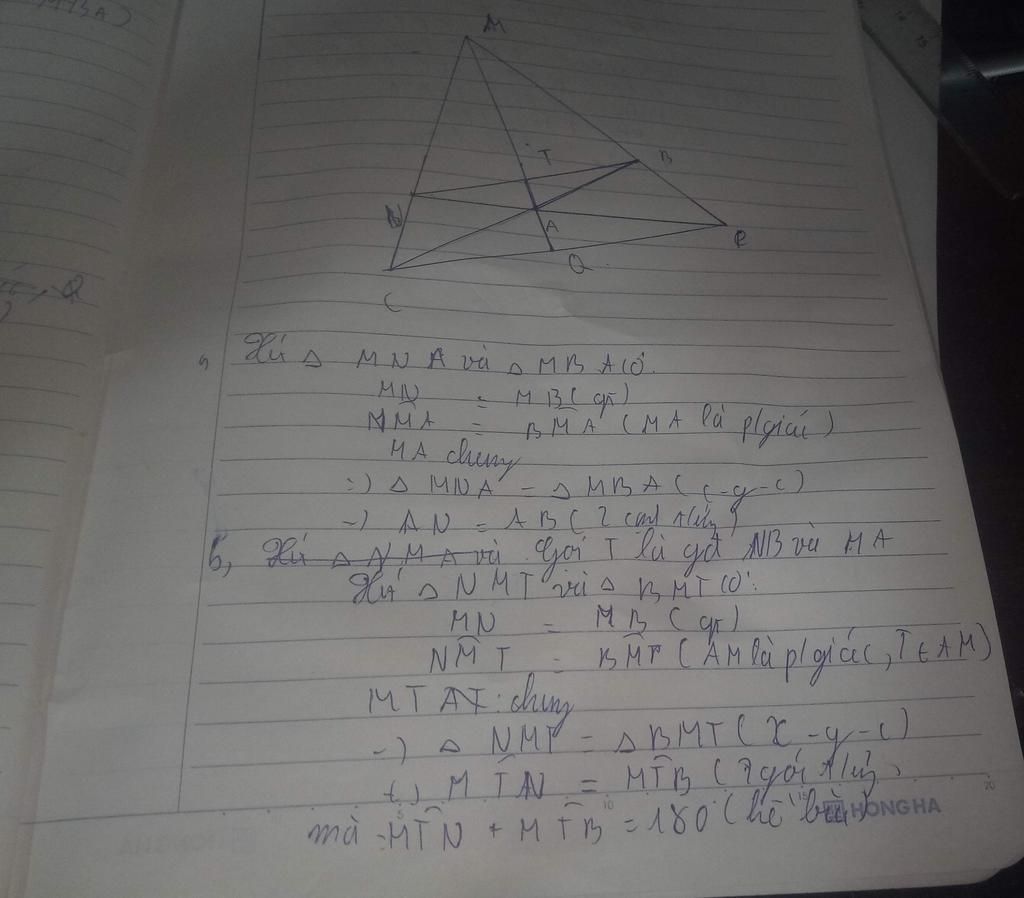 MBA)
M
T
B
N
A
P
Q
C
a, Xét △ MNA và △ MBA có
MN = MB (gt)
NMA = BMA (MA là p/giác)
MA chung
=) △ MNA = △ MBA (c-g-c)
=) AN = AB (2 cạnh t/ứng)
b, Xét △ NMA và Gọi T là gđ NB và MA
Xét △ NMT và △ BMT có:
MN = MB (gt)
NMT = BMT (AM là p/giác, T ∈ AM)
MT AT: chung
=) △ NMT = △ BMT (c-g-c)
=) MTN = MTB (2 góc t/ứng)
mà: MTN + MTB = 180 (kề bù)
5 10 15 20
HONGHA